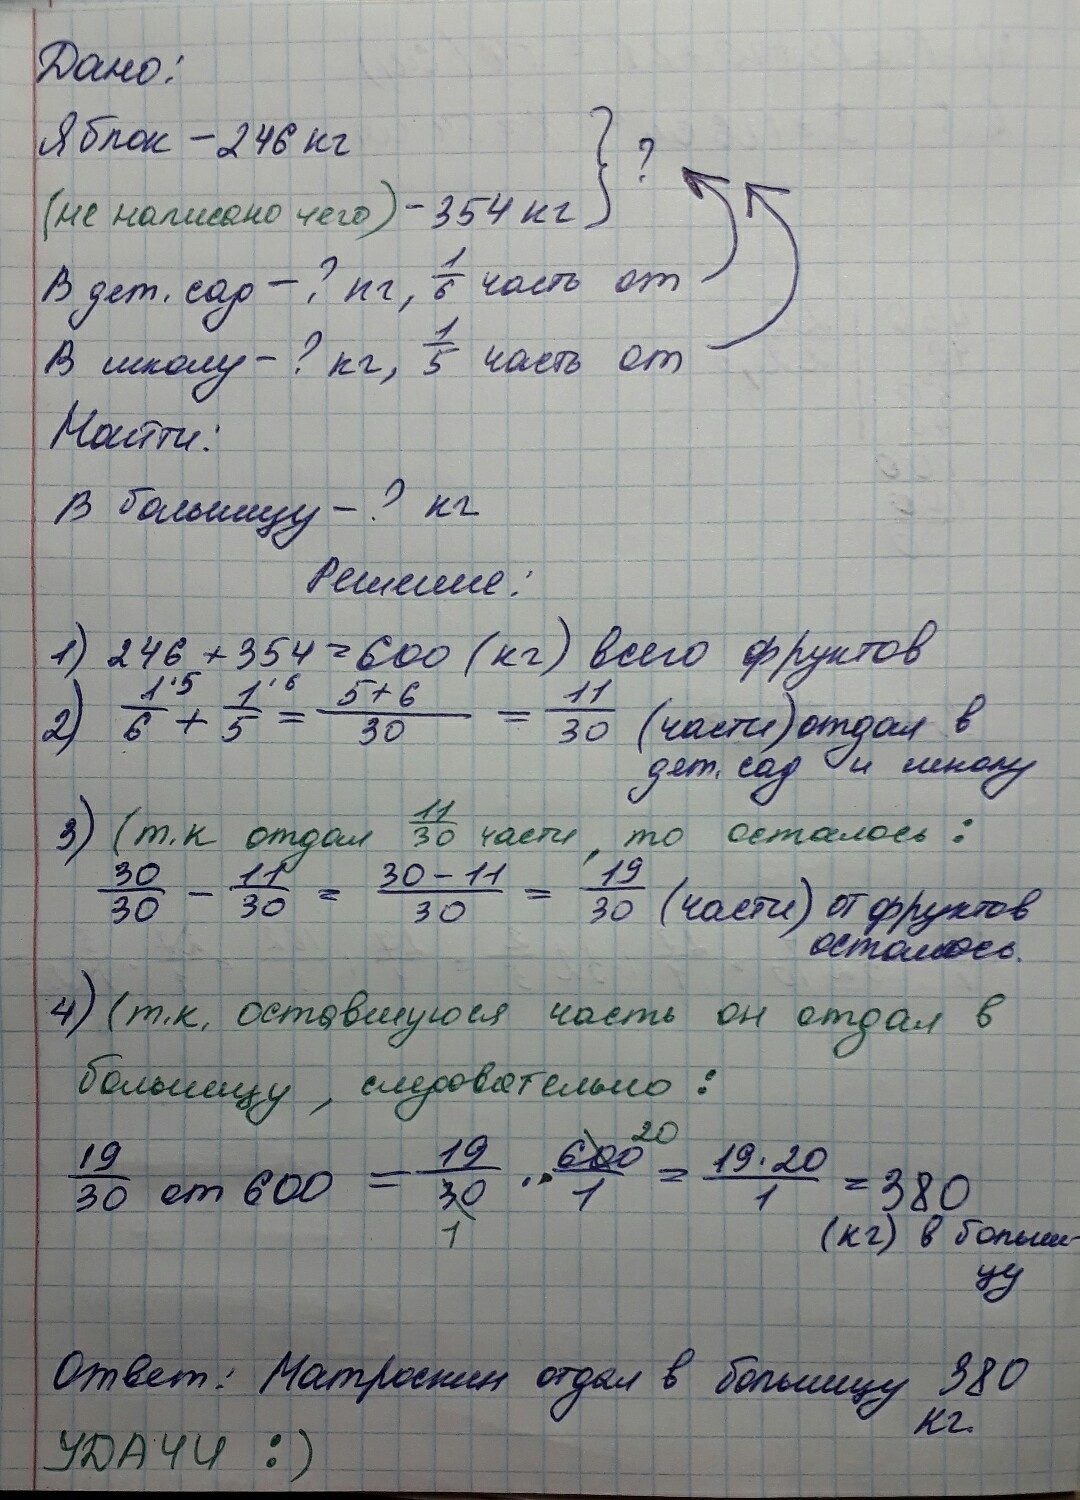 Дано:
Яблок - 246 кг
(не написано чего) - 354 кг } ?
В дет. сад - ? кг, 1/6 часть от
В школу - ? кг, 1/5 часть от
Найти:
В больницу - ? кг
Решение:
1) 246 + 354 = 600 (кг) всего фруктов
2) 1·5/6 + 1·6/5 = 5+6/30 = 11/30 (части) отдал в
дет. сад и школу
3) (т.к отдал 11/30 части, то осталось:
30/30 - 11/30 = 30-11/30 = 19/30 (части) от фруктов
осталось.
4) (т.к. оставшуюся часть он отдал в
больницу, следовательно:
19/30 от 600 = 19/30 · 600/1 = 19·20/1 = 380
20
1
(кг) в больни-
цу
Ответ: Матроскин отдал в больницу 380
кг.
УДАЧИ :)